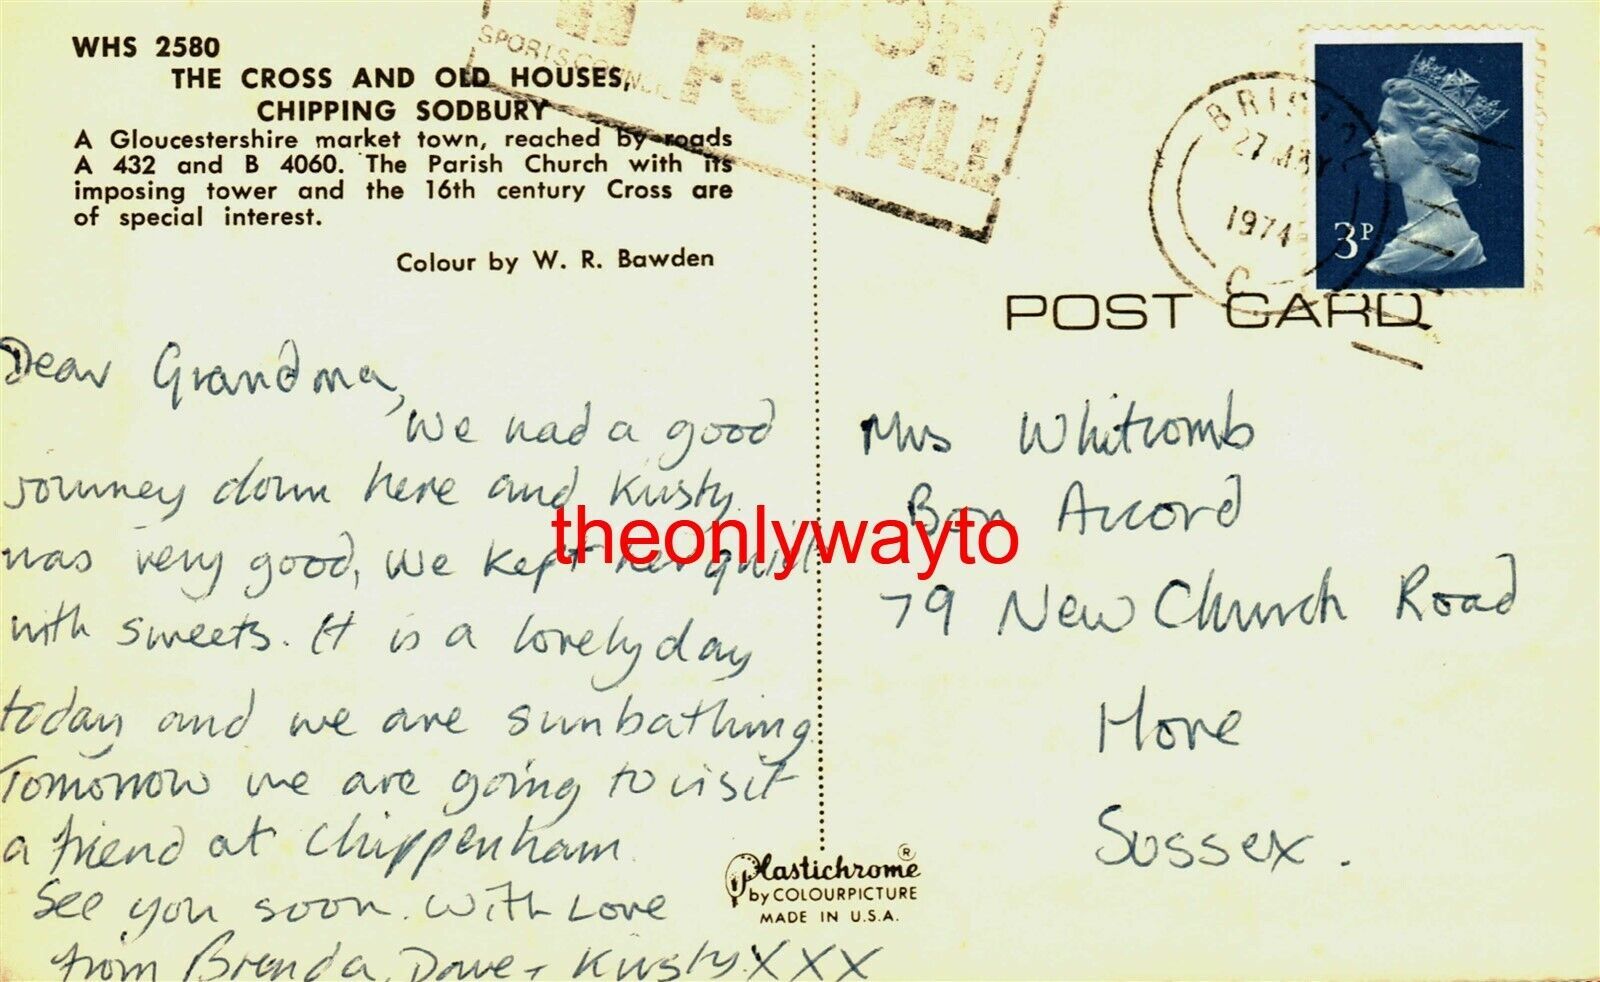 WHS 2580
THE CROSS AND OLD HOUSES,
CHIPPING SODBURY
A Gloucestershire market town, reached by roads
A 432 and B 4060. The Parish Church with its
imposing tower and the 16th century Cross are
of special interest.
Colour by W. R. Bawden
Dear Grandma,
We had a good
journey down here and Kirsty
was very good, we kept her quiet
with sweets. It is a lovely day
today and we are sunbathing.
Tomorrow we are going to visit
a friend at Chippenham.
See you soon. With Love
from Brenda, Dave + Kirsty XXX
SPORT
FOR ALL
SPORTS COUNCIL
BRISTOL
27 MAY
1974
C
3P
POST CARD
Mrs Whitcomb
Bon Accord
79 New Church Road
Hove
Sussex.
Plastichrome ®
by COLOURPICTURE
MADE IN U.S.A.
theonlywayto